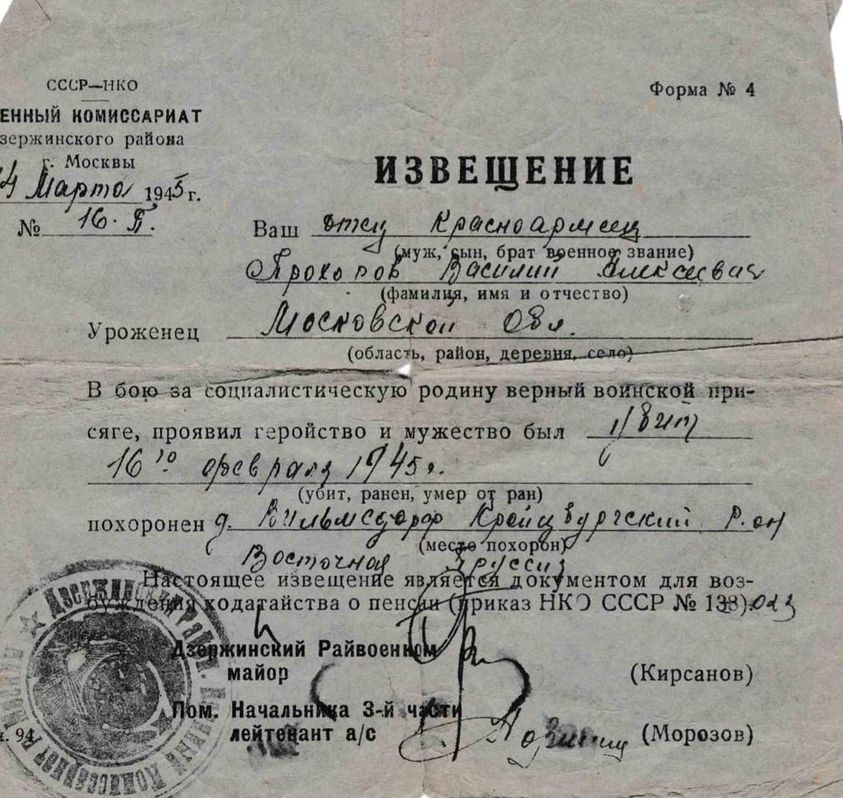 СССР—НКО
Форма № 4
ЕННЫЙ КОМИССАРИАТ
зержинского района
г. Москвы
4 Марта 1945 г.
ИЗВЕЩЕНИЕ
№ 16. П.
Ваш отец Красноармеец
(муж, сын, брат военное звание)
Прохоров Василий Алексеевич
(фамилия, имя и отчество)
Уроженец Московской Обл.
(область, район, деревня, село)
В бою за социалистическую родину верный воинской при-
сяге, проявил геройство и мужество был убит
16го февраля 1945г.
(убит, ранен, умер от ран)
похоронен д. Вильмсдорф Крейцбургский р-он
(место похорон)
Восточная Пруссия
Настоящее извещение является документом для воз-
буждения ходатайства о пенсии (приказ НКО СССР № 138) 023
Дзержинский Райвоенком
майор (Кирсанов)
Пом. Начальника 3-й части
лейтенант а/с (Морозов)
. 94